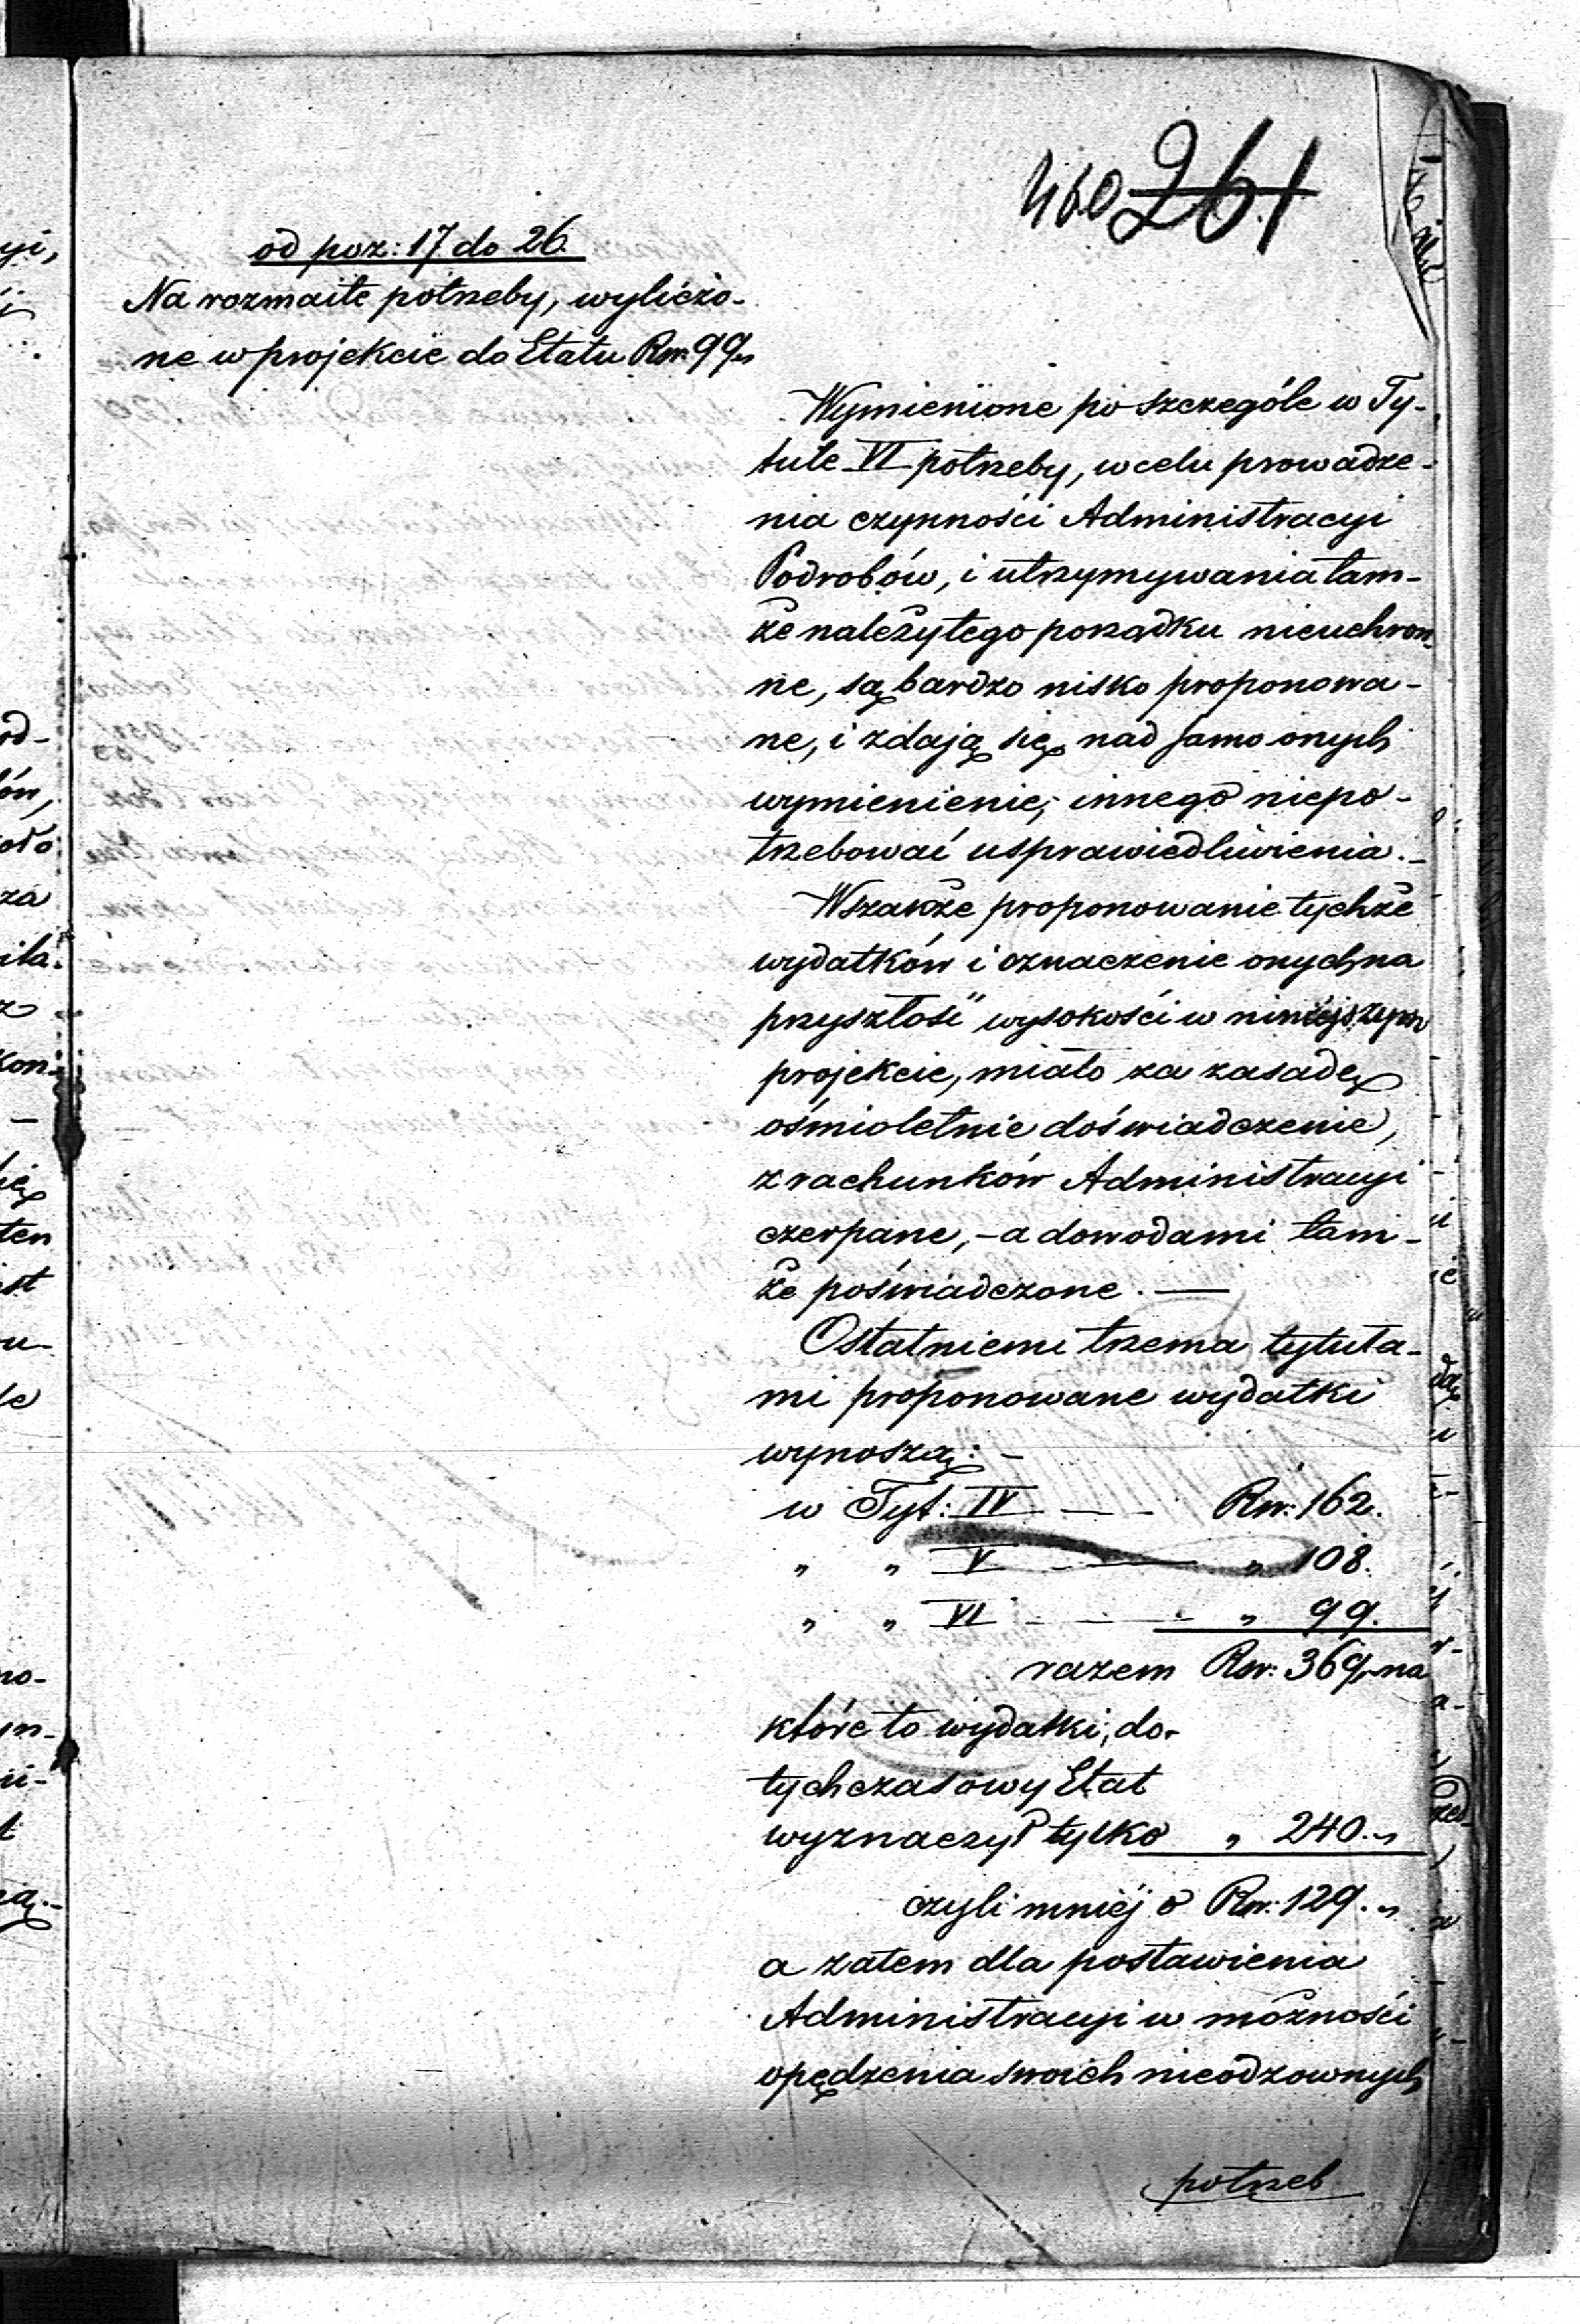 460 261
od poz: 17 do 26.
Na rozmaite potrzeby, wyliczo-
ne w projekcie do Etatu Rsr: 99 „
Wymienione po szczególe w Ty-
tule VI potrzeby, w celu prowadze-
nia czynności Administracyi
Podrobów, i utrzymywania tam-
że należytego porządku nieuchron-
ne, są bardzo nisko proponowa-
ne, i zdają się, nad samo onych
wymienienie, innego niepo-
trzebować usprawiedliwienia. –
Wszakże proponowanie tychże
wydatków i oznaczenie onych na
przyszłość wysokości w niniejszym
projekcie, miało za zasadę
ośmioletnie doświadczenie,
z rachunków Administracyi
czerpane, – a dowodami tam-
że poświadczone. —
Ostatniemi trzema tytuła-
mi proponowane wydatki
wynoszą: –
w Tyt: IV — – Rsr: 162.
„ „ V — „ 108.
„ „ VI — „ 99.
razem Rsr: 369, na
które to wydatki, do-
tychczasowy Etat
wyznaczył tylko „ 240. „
czyli mniéj o Rsr: 129. „
a zatem dla postawienia
Administracyi w możności
opędzenia swoich nieodzownych
potrzeb